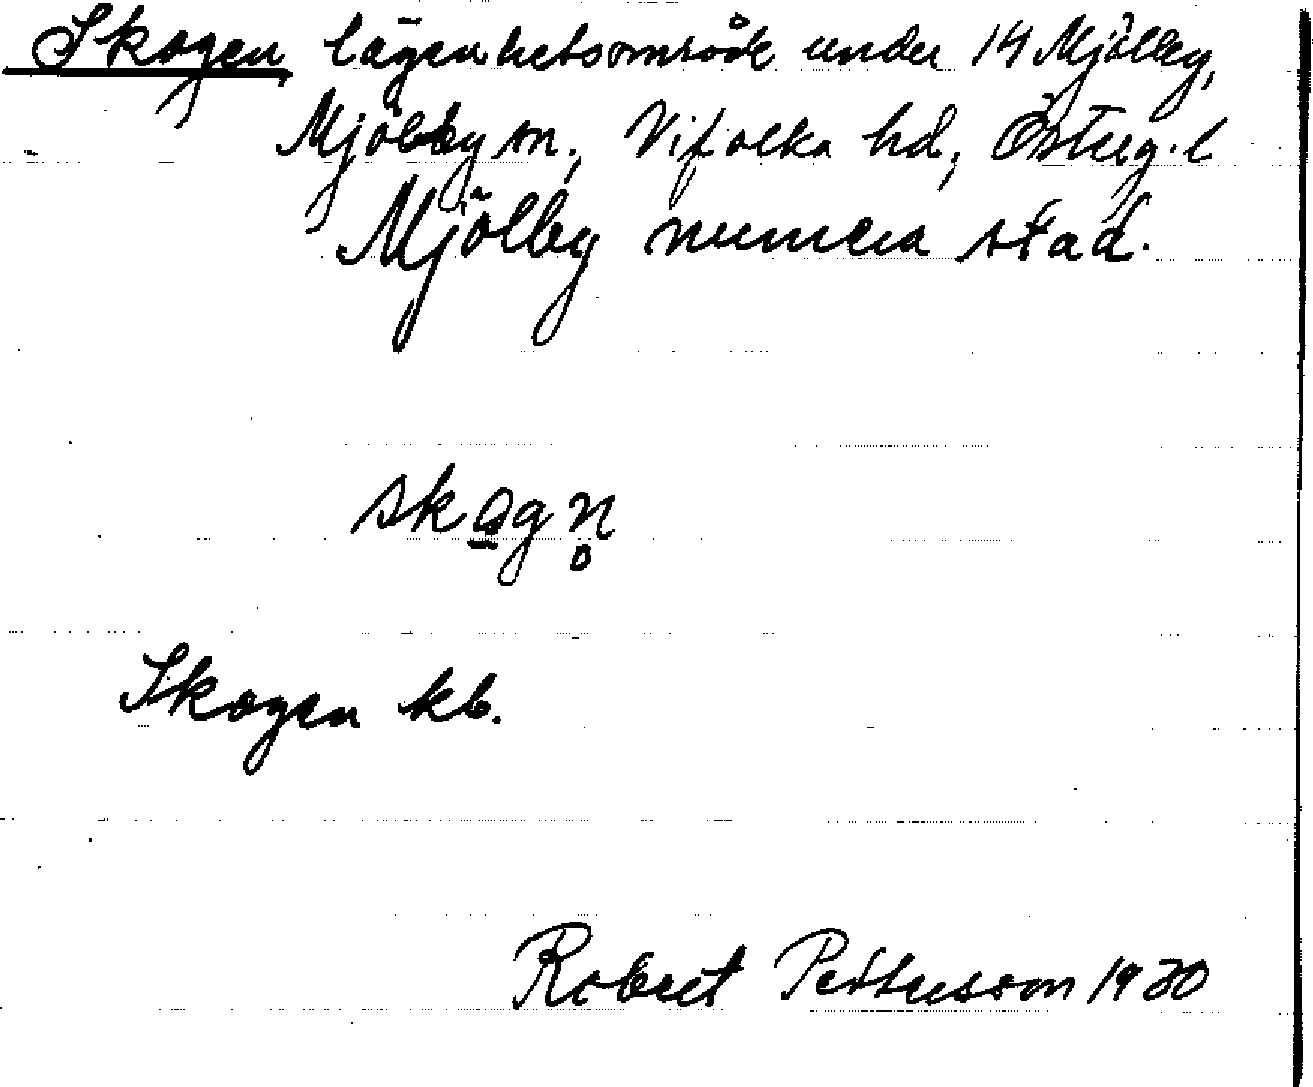 Skogen, lägenhetsområde under 14 Mjölby,
Mjölby sn., Vifolka hd, Österg. l
Mjölby numera stad.
skogn̥
Skogen kb.
Robert Pettersson 1930